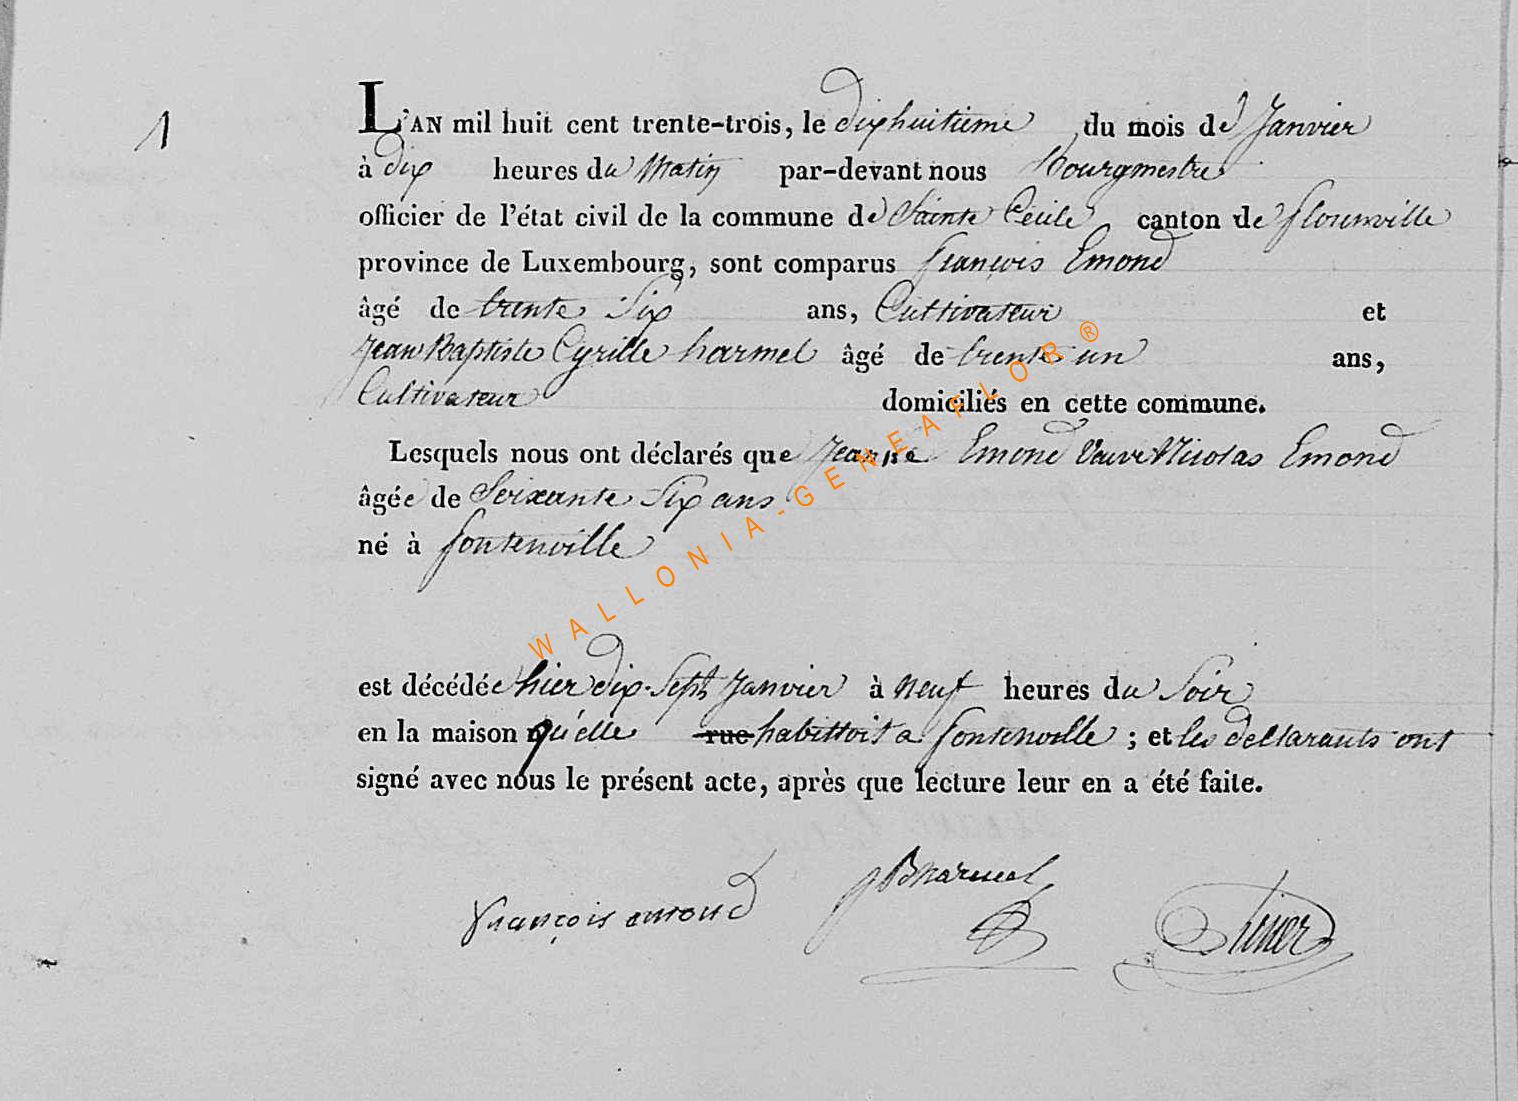 1
L'AN mil huit cent trente-trois, le dixhuitieme du mois de Janvier
à dix heures du Matin par-devant nous Bourgmestre
officier de l'état civil de la commune de Sainte Cecile canton de florenville
province de Luxembourg, sont comparus françois Emond
âgé de trente Six ans, Cultivateur et
Jean Baptiste Cyrille harmel âgé de trente un ans,
Cultivateur domiciliés en cette commune.
Lesquels nous ont déclarés que Jeanne Emond Veuve Nicolas Emond
âgée de Soixante Six ans
né à fontenoille
est décédée hier dix-Sept Janvier à neuf heures du Soir
en la maison qu'elle rue habittoit a fontenoille ; et les declarants ont
signé avec nous le présent acte, après que lecture leur en a été faite.
françois emond JBharmel
WALLONIA-GENEAFLOR®